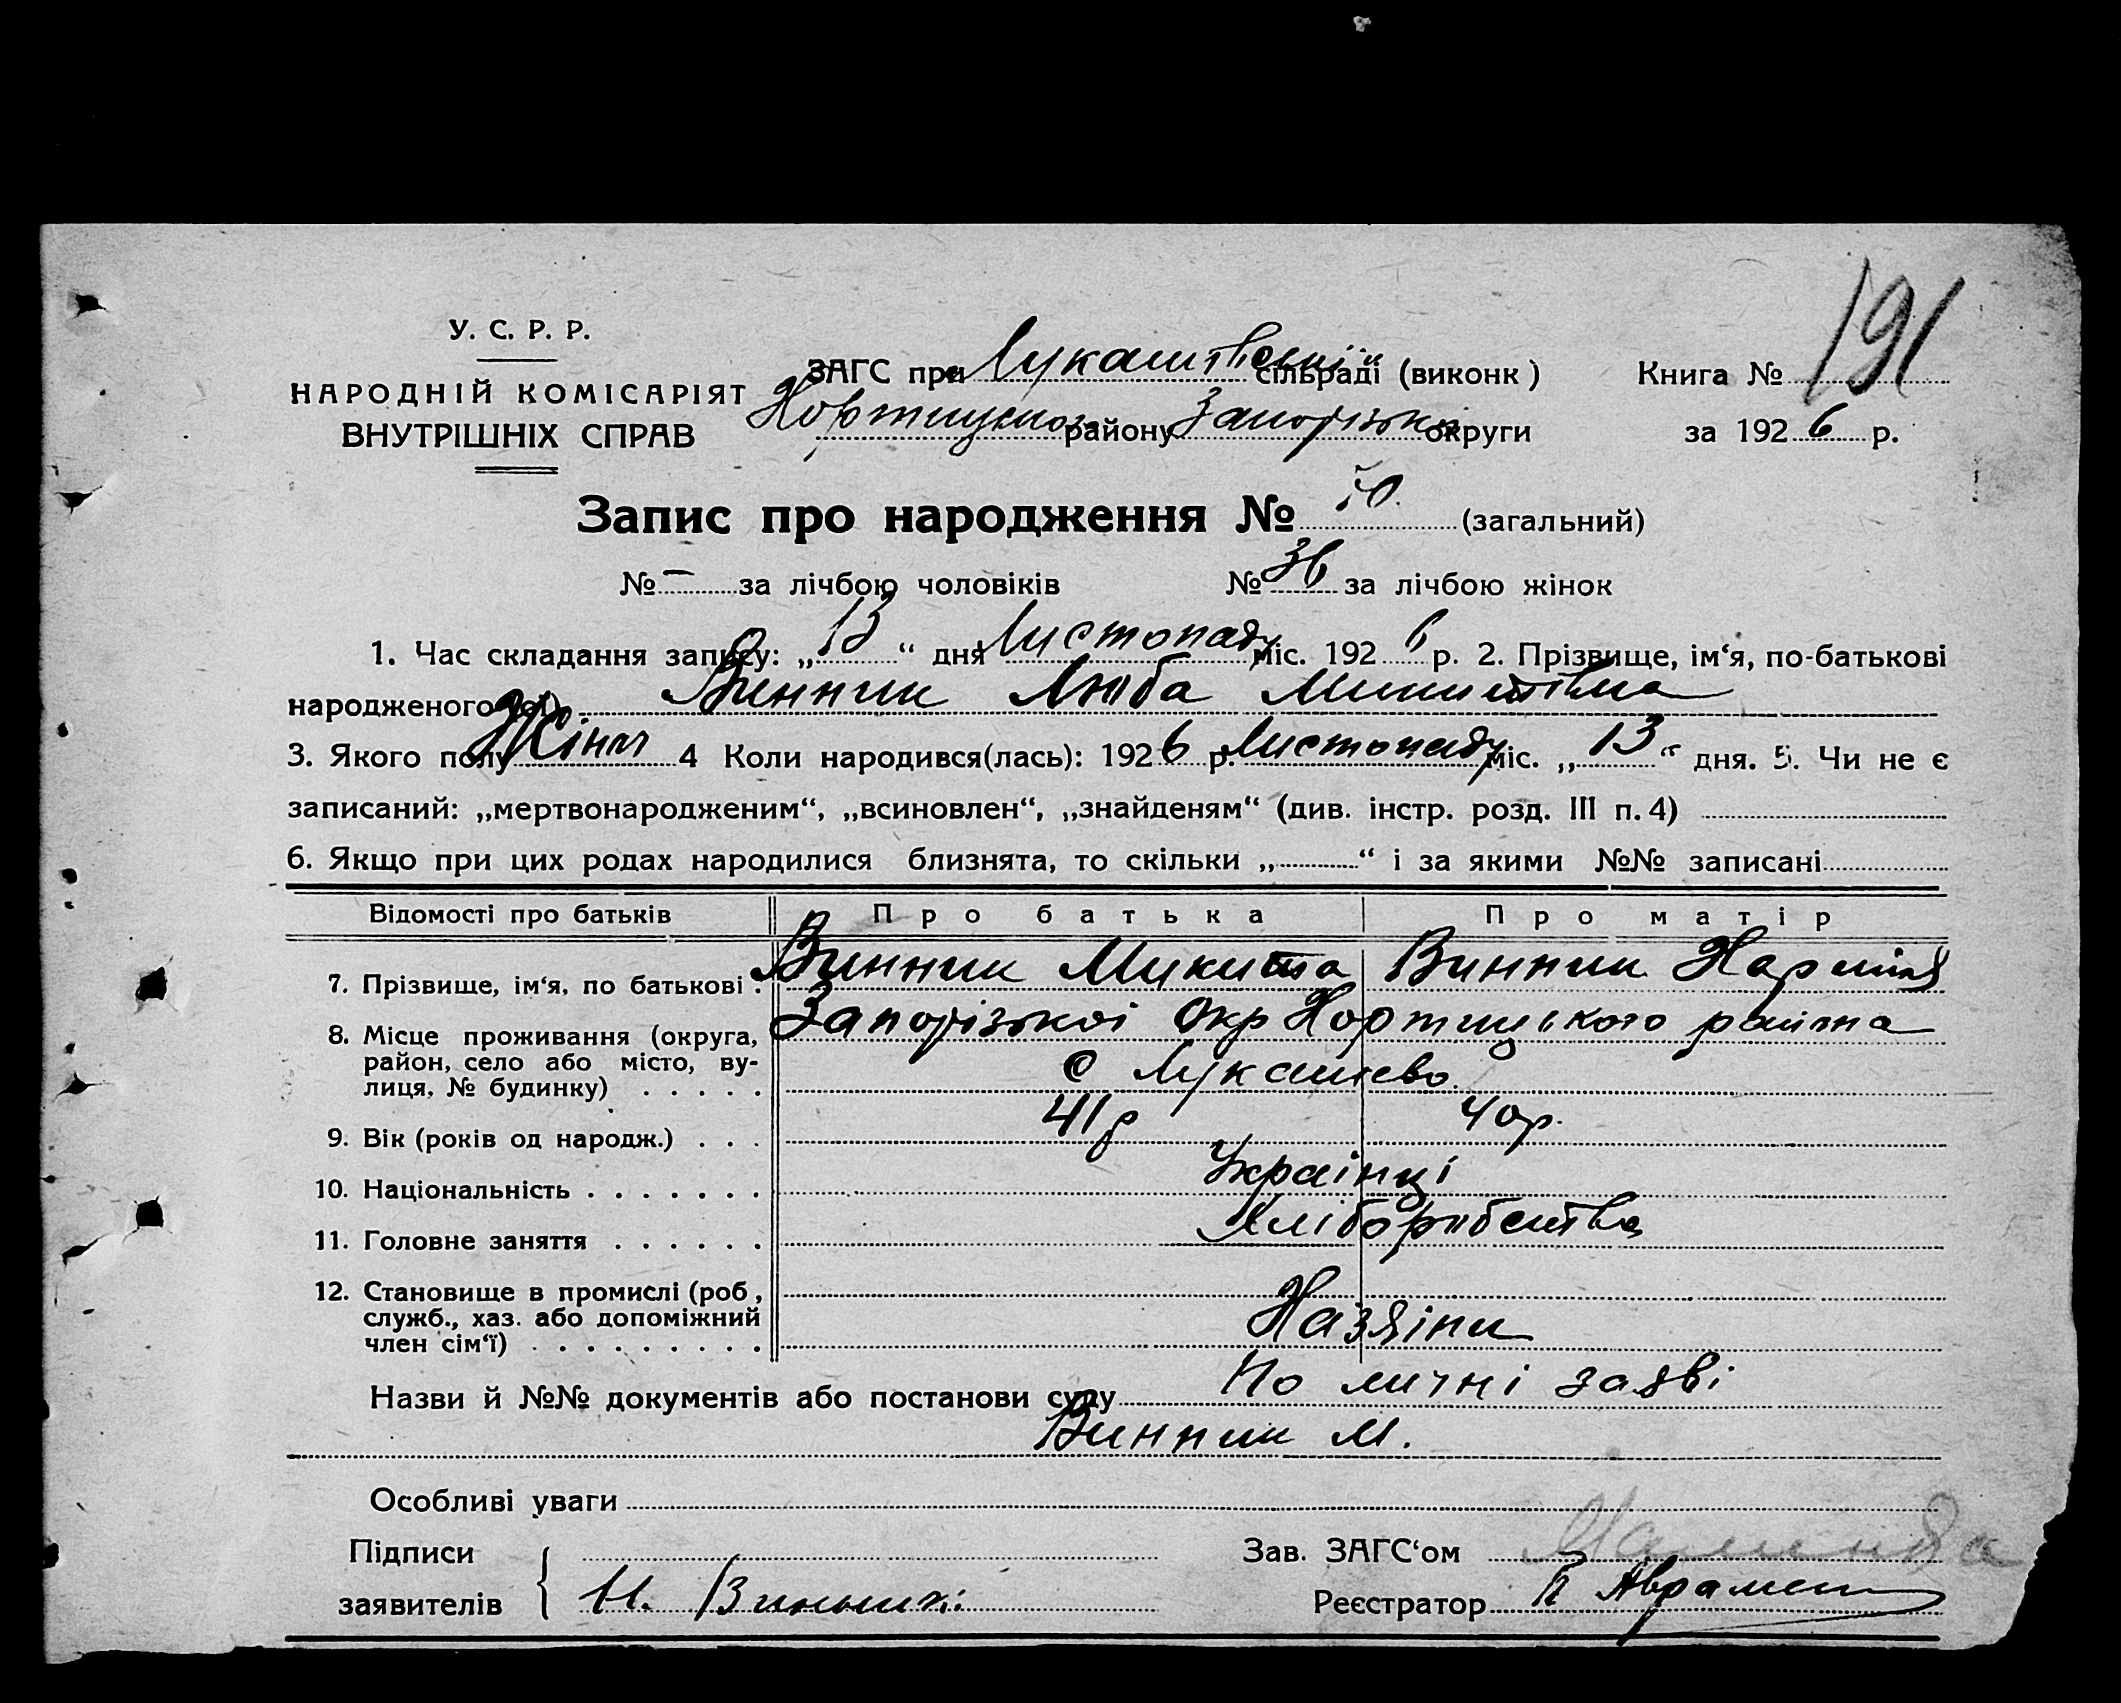 191
У. С. Р. Р.
НАРОДНІЙ КОМІСАРІЯТ
ВНУТРІШНІХ СПРАВ
ЗАГС при Лукашівській сільраді (виконк)
Хортицького району Запорізької округи
Книга №
за 1926 р.
Запис про народження № 70. (загальний)
№ — за лічбою чоловіків № 36 за лічбою жінок
1. Час складання запису: „13“ дня Листопаду міс. 1926 р. 2. Прізвище, ім‘я, по-батькові
народженого(ої) Винник Люба Микитівна
3. Якого полу Жіноч 4 Коли народився(лась): 1926 р. Листопаду міс. „13“ дня. 5. Чи не є
записаний: „мертвонародженим“, „всиновлен“, „знайденям“ (див. інстр. розд. III п. 4)
6. Якщо при цих родах народилися близнята, то скільки „ “ і за якими №№ записані
Відомості про батьків Про батька Про матір
7. Прізвище, ім‘я, по батькові . Винник Микита Винник
8. Місце проживання (округа, Запорізької Окр Хортицького района
район, село або місто, ву-
лиця, № будинку) . . . . . с Лукашево
9. Вік (років од народж.) . . . 41 р 40 р.
10. Національність . . . . . . . Українці
11. Головне заняття . . . . . . Хліборобства
12. Становище в промислі (роб,
служб., хаз. або допоміжний Хазяіни
член сім‘ї) . . . . . . . . .
Назви й №№ документів або постанови суду По личні заяві
Винник М.
Особливі уваги
Підписи
заявителів
Зав. ЗАГС‘ом
Реєстратор П Аврамен